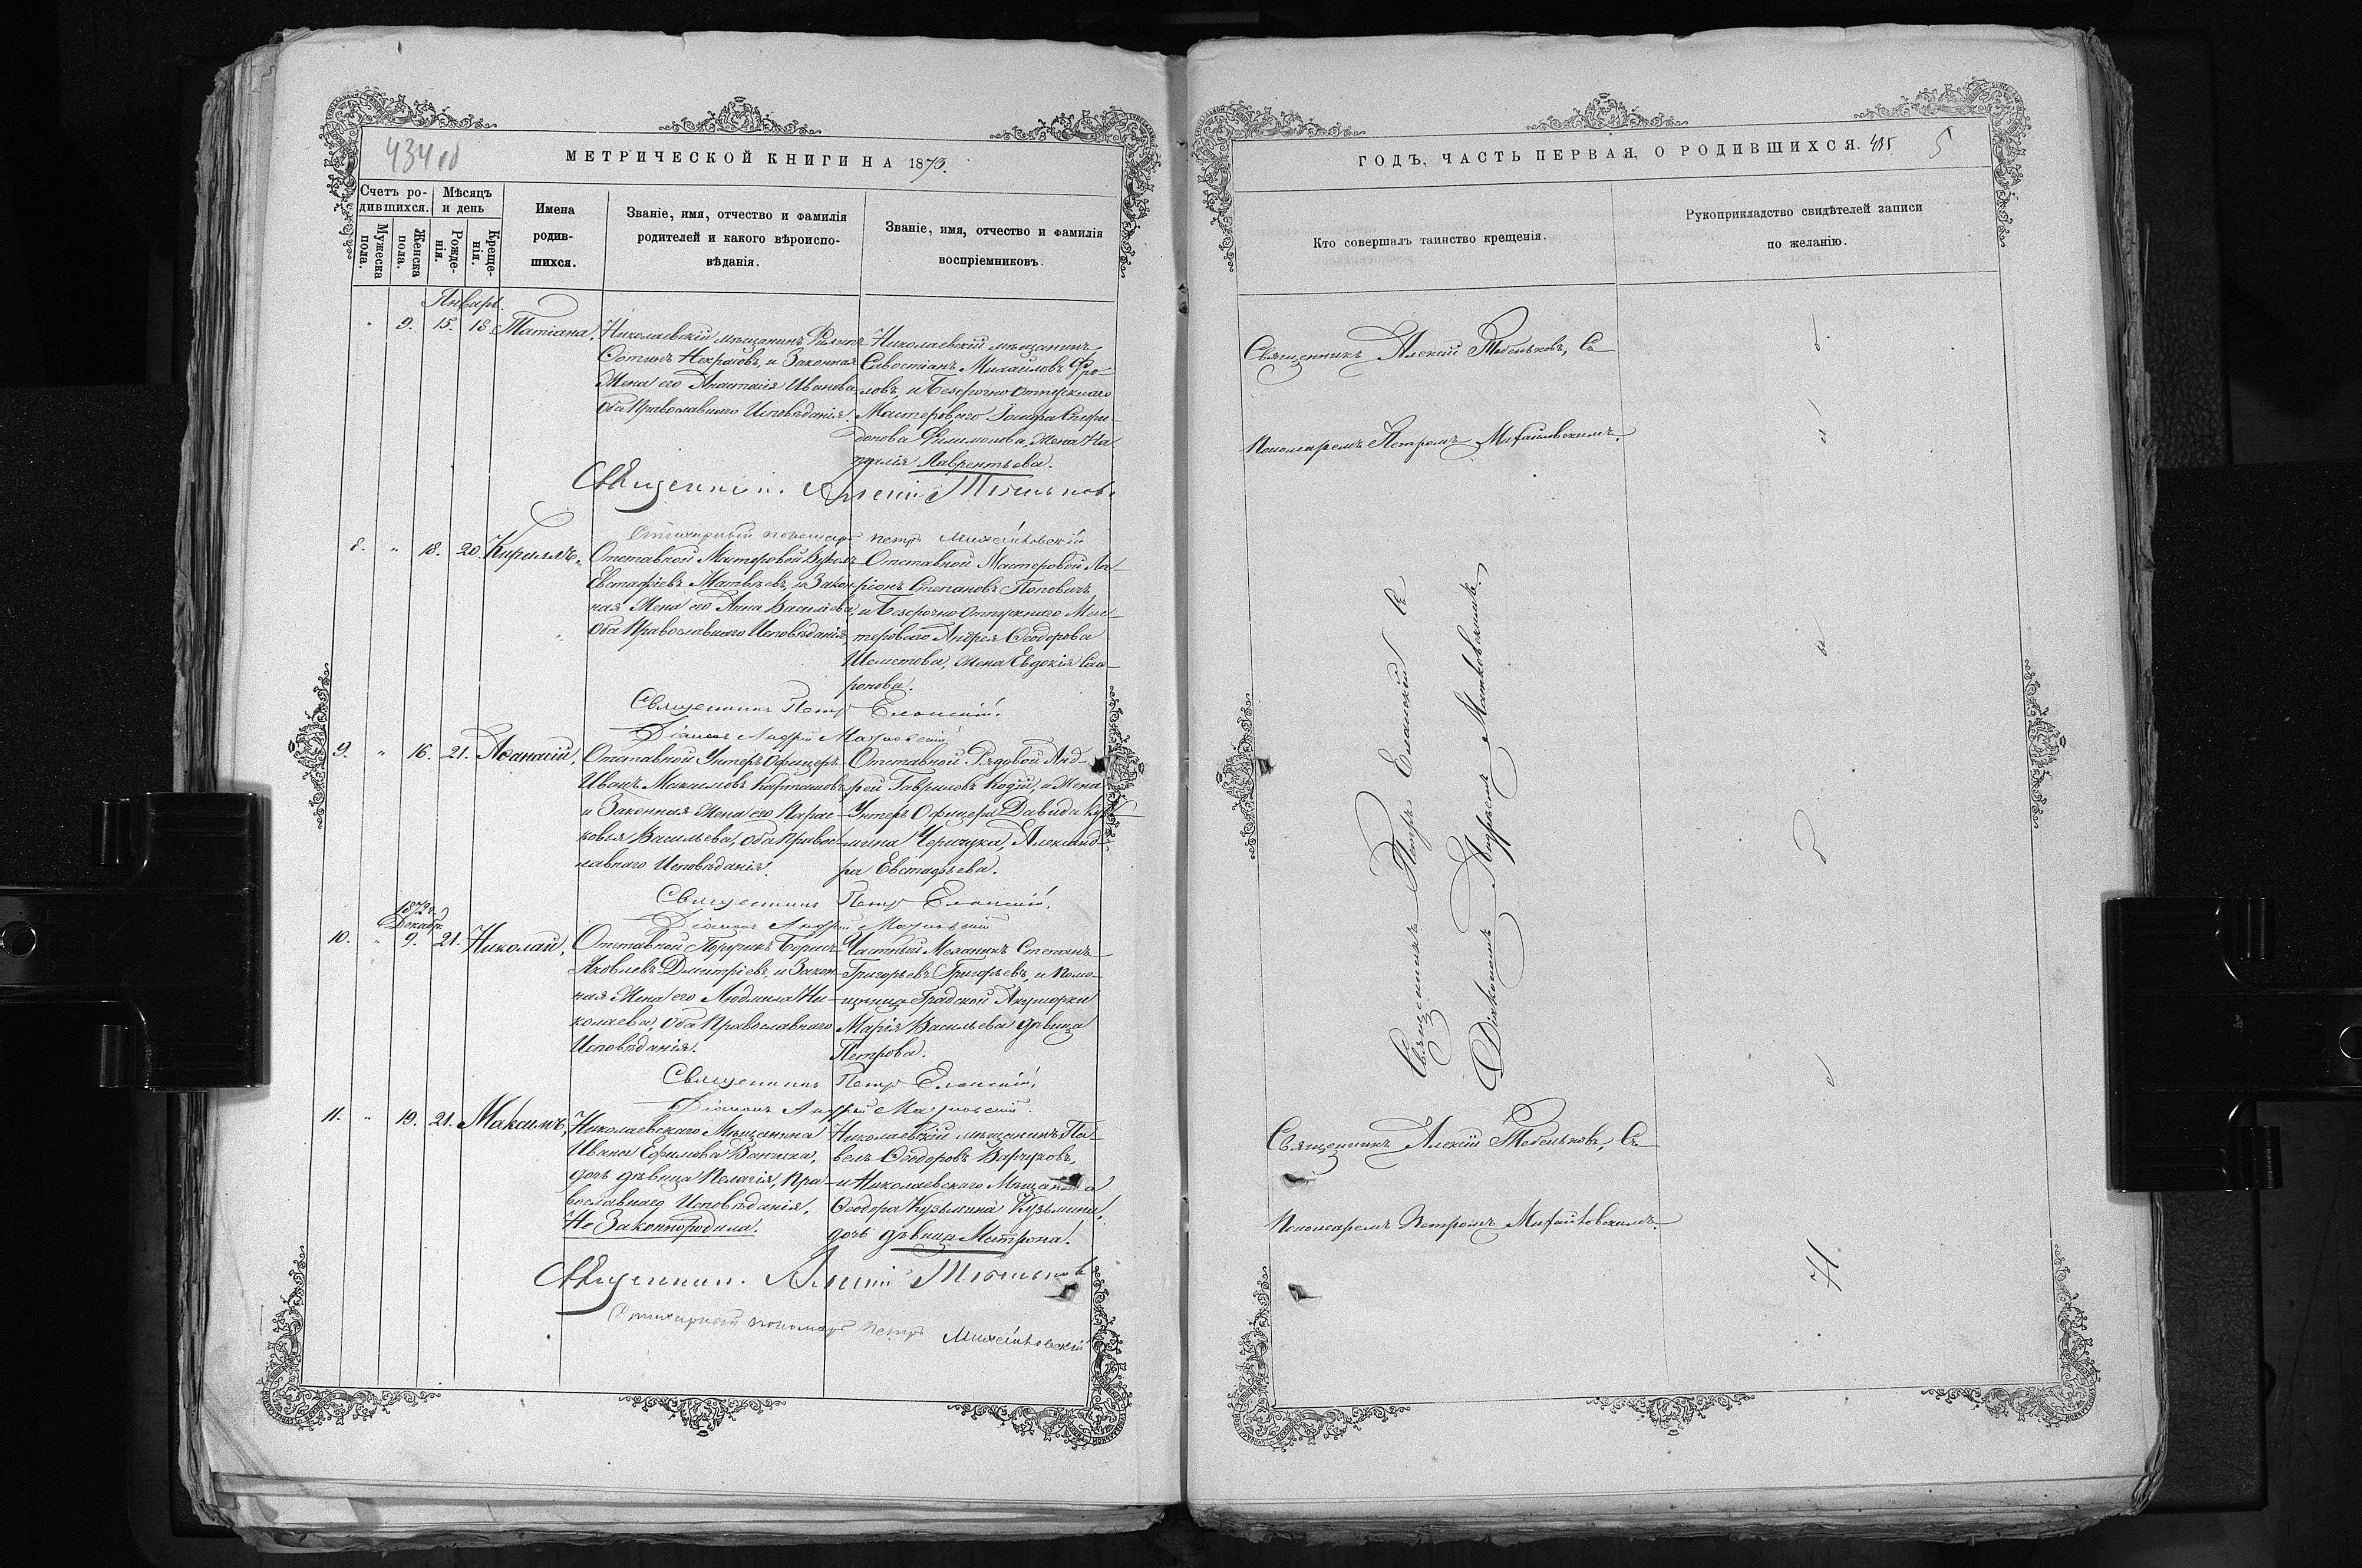 434 об
МЕТРИЧЕСКОЙ КНИГИ НА 1873.
Счетъ ро-
дившихся.
Мѣсяцъ
и день
Мужеска
пола.
Женска
пола.
Рожде-
нія.
Креще-
нія.
Имена
родив-
шихся.
Званіе, имя, отчество и фамилія
родителей и какого вѣроиспо-
вѣданія.
Званіе, имя, отчество и фамилія
воспріемниковъ.
Январь.
9. 15. 18. Татіана,
Николаевскій мѣщанинъ
Фотинъ Некрасовъ, и Законная
Жена его Анастасія Иванова
Оба Православнаго Исповѣданія.
Николаевскій мѣщанинъ
Савостіанъ Михайловъ Фро-
ловъ, и Безсрочно отпускнаго
Мастероваго Іосифа Спири-
донова Филимонова, жена На-
талія Лаврентьева.
Священникъ Алексій Тебеньковъ
Стихарный пономарь Петръ Михайловскій
8. " 18. 20. Кириллъ,
Отставной Мастеровой Вуколъ
Евстафіевъ Матвѣевъ, и Закон-
ная Жена его Анна Васильева,
Оба Православнаго Исповѣданія
Отставной Мастеровой Ла-
ріонъ Степановъ Поповичъ
и Безсрочно отпускнаго Мас-
тероваго Андрея Ѳеодорова
Шелестова, жена Евдокія Соф-
ронова.
Священникъ Петръ Еланскій.
Діаконъ Андрей Матковскій
9. " 16. 21. Аѳанасій,
Отставной Унтеръ Офицеръ
Иванъ Максимовъ Карташовъ
и Законная Жена его Парас-
ковья Васильева, оба Правос-
лавнаго Исповѣданія.
Отставной Рядовой Анд-
рей Гавриловъ Кодій, и Жена
Унтеръ Офицера Давида Кузь-
мина Черичука, Александ-
ра Евстафьева.
Священникъ Петръ Еланскій.
Діаконъ Андрей Матковскій
1872 г.
Декабр.
10. " 9. 21. Николай,
Отставной Поручикъ Борисъ
Яковлевъ Дмитріевъ, и Закон-
ная Жена его Людмила Ни-
колаева, Оба Православнаго
Исповѣданія.
Частный Механикъ Степанъ
Григорьевъ Григорьевъ, и помо-
щница Градской Акушорки
Марія Васильева дѣвица
Петрова.
Священникъ Петръ Еланскій.
Діаконъ Андрей Матковскій
11. " 19. 21. Максимъ,
Николаевскаго Мѣщанина
Ивана Ефимова
дочь дѣвица Пелагія, Пра-
вославнаго Исповѣданія.
Не Законнородила.
Николаевскій мѣщанинъ Па-
велъ Ѳеодоровъ
и Николаевскаго Мѣщанина
Ѳеодора Кузьмина Кузьмина,
дочь дѣвица Матрона.
Священникъ Алексій Тебеньковъ
Стихарный пономарь Петръ Михайловскій
ГОДЪ, ЧАСТЬ ПЕРВАЯ, О РОДИВШИХСЯ. 435
5
Кто совершалъ таинство крещенія.
Рукоприкладство свидѣтелей записи
по желанію.
Священникъ Алексій Тебеньковъ, Съ
Пономаремъ Петромъ Михайловскимъ.
Священникъ Петръ Еланскій Съ
Діакономъ Андреемъ Матковскимъ.
Священникъ Алексій Тебеньковъ, Съ
Пономаремъ Петромъ Михайловскимъ.